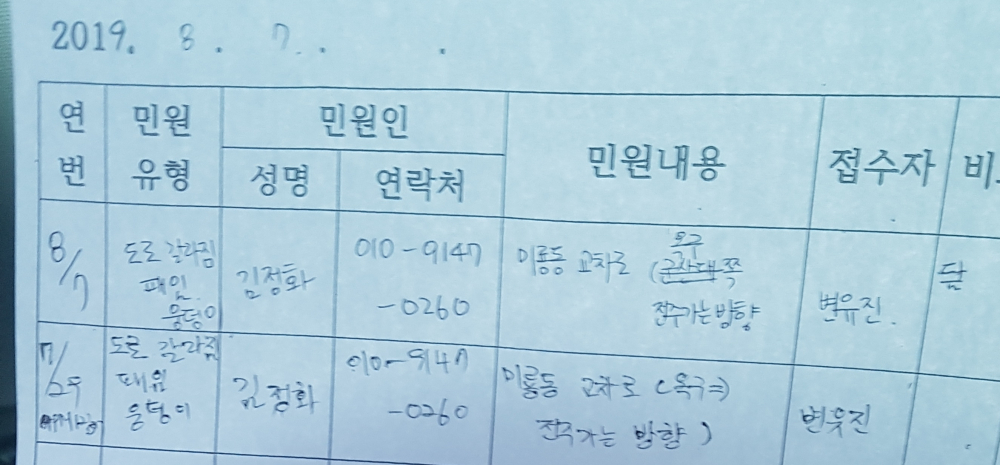 2019. 8. 7. .
연번 민원유형 민원인 민원내용 접수자 비
성명 연락처
8/7 도로 갈라짐 김정화 010-9147 이룡동 교차로 (군산대쪽 옥구
패임 -0260 전주가는방향 변유진.
웅덩이
7/ 도로 갈라짐 010-9147 미룡동 교차로 (옥구⇒
패임 김정화 -0260 전주가는 방향) 변유진
웅덩이